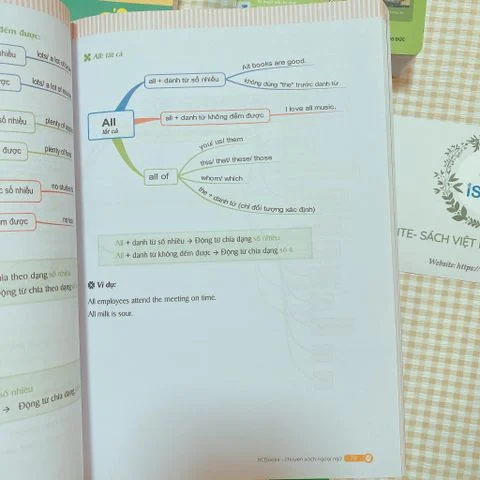 đếm được:
lots/ a lot of
lots/ a lot of
số nhiều
plenty of
được
plenty of
số nhiều
no
đếm được
no
chia theo dạng số nhiều
từ chia theo dạng
số nhiều
→ Động từ chia dạng
All: tất cả
All
tất cả
all + danh từ số nhiều
All books are good.
không dùng "the" trước danh từ
all + danh từ không đếm được
I love all music.
all of
you/ us/ them
this/ that/ these/ those
whom/ which
the + danh từ (chỉ đối tượng xác định)
All + danh từ số nhiều → Động từ chia dạng số nhiều
All + danh từ không đếm được → Động từ chia dạng số ít
Ví dụ:
All employees attend the meeting on time.
All milk is sour.
MCBooks - Chuyên sách ngoại ngữ
ITE- SÁCH VIỆT
Website: https:/